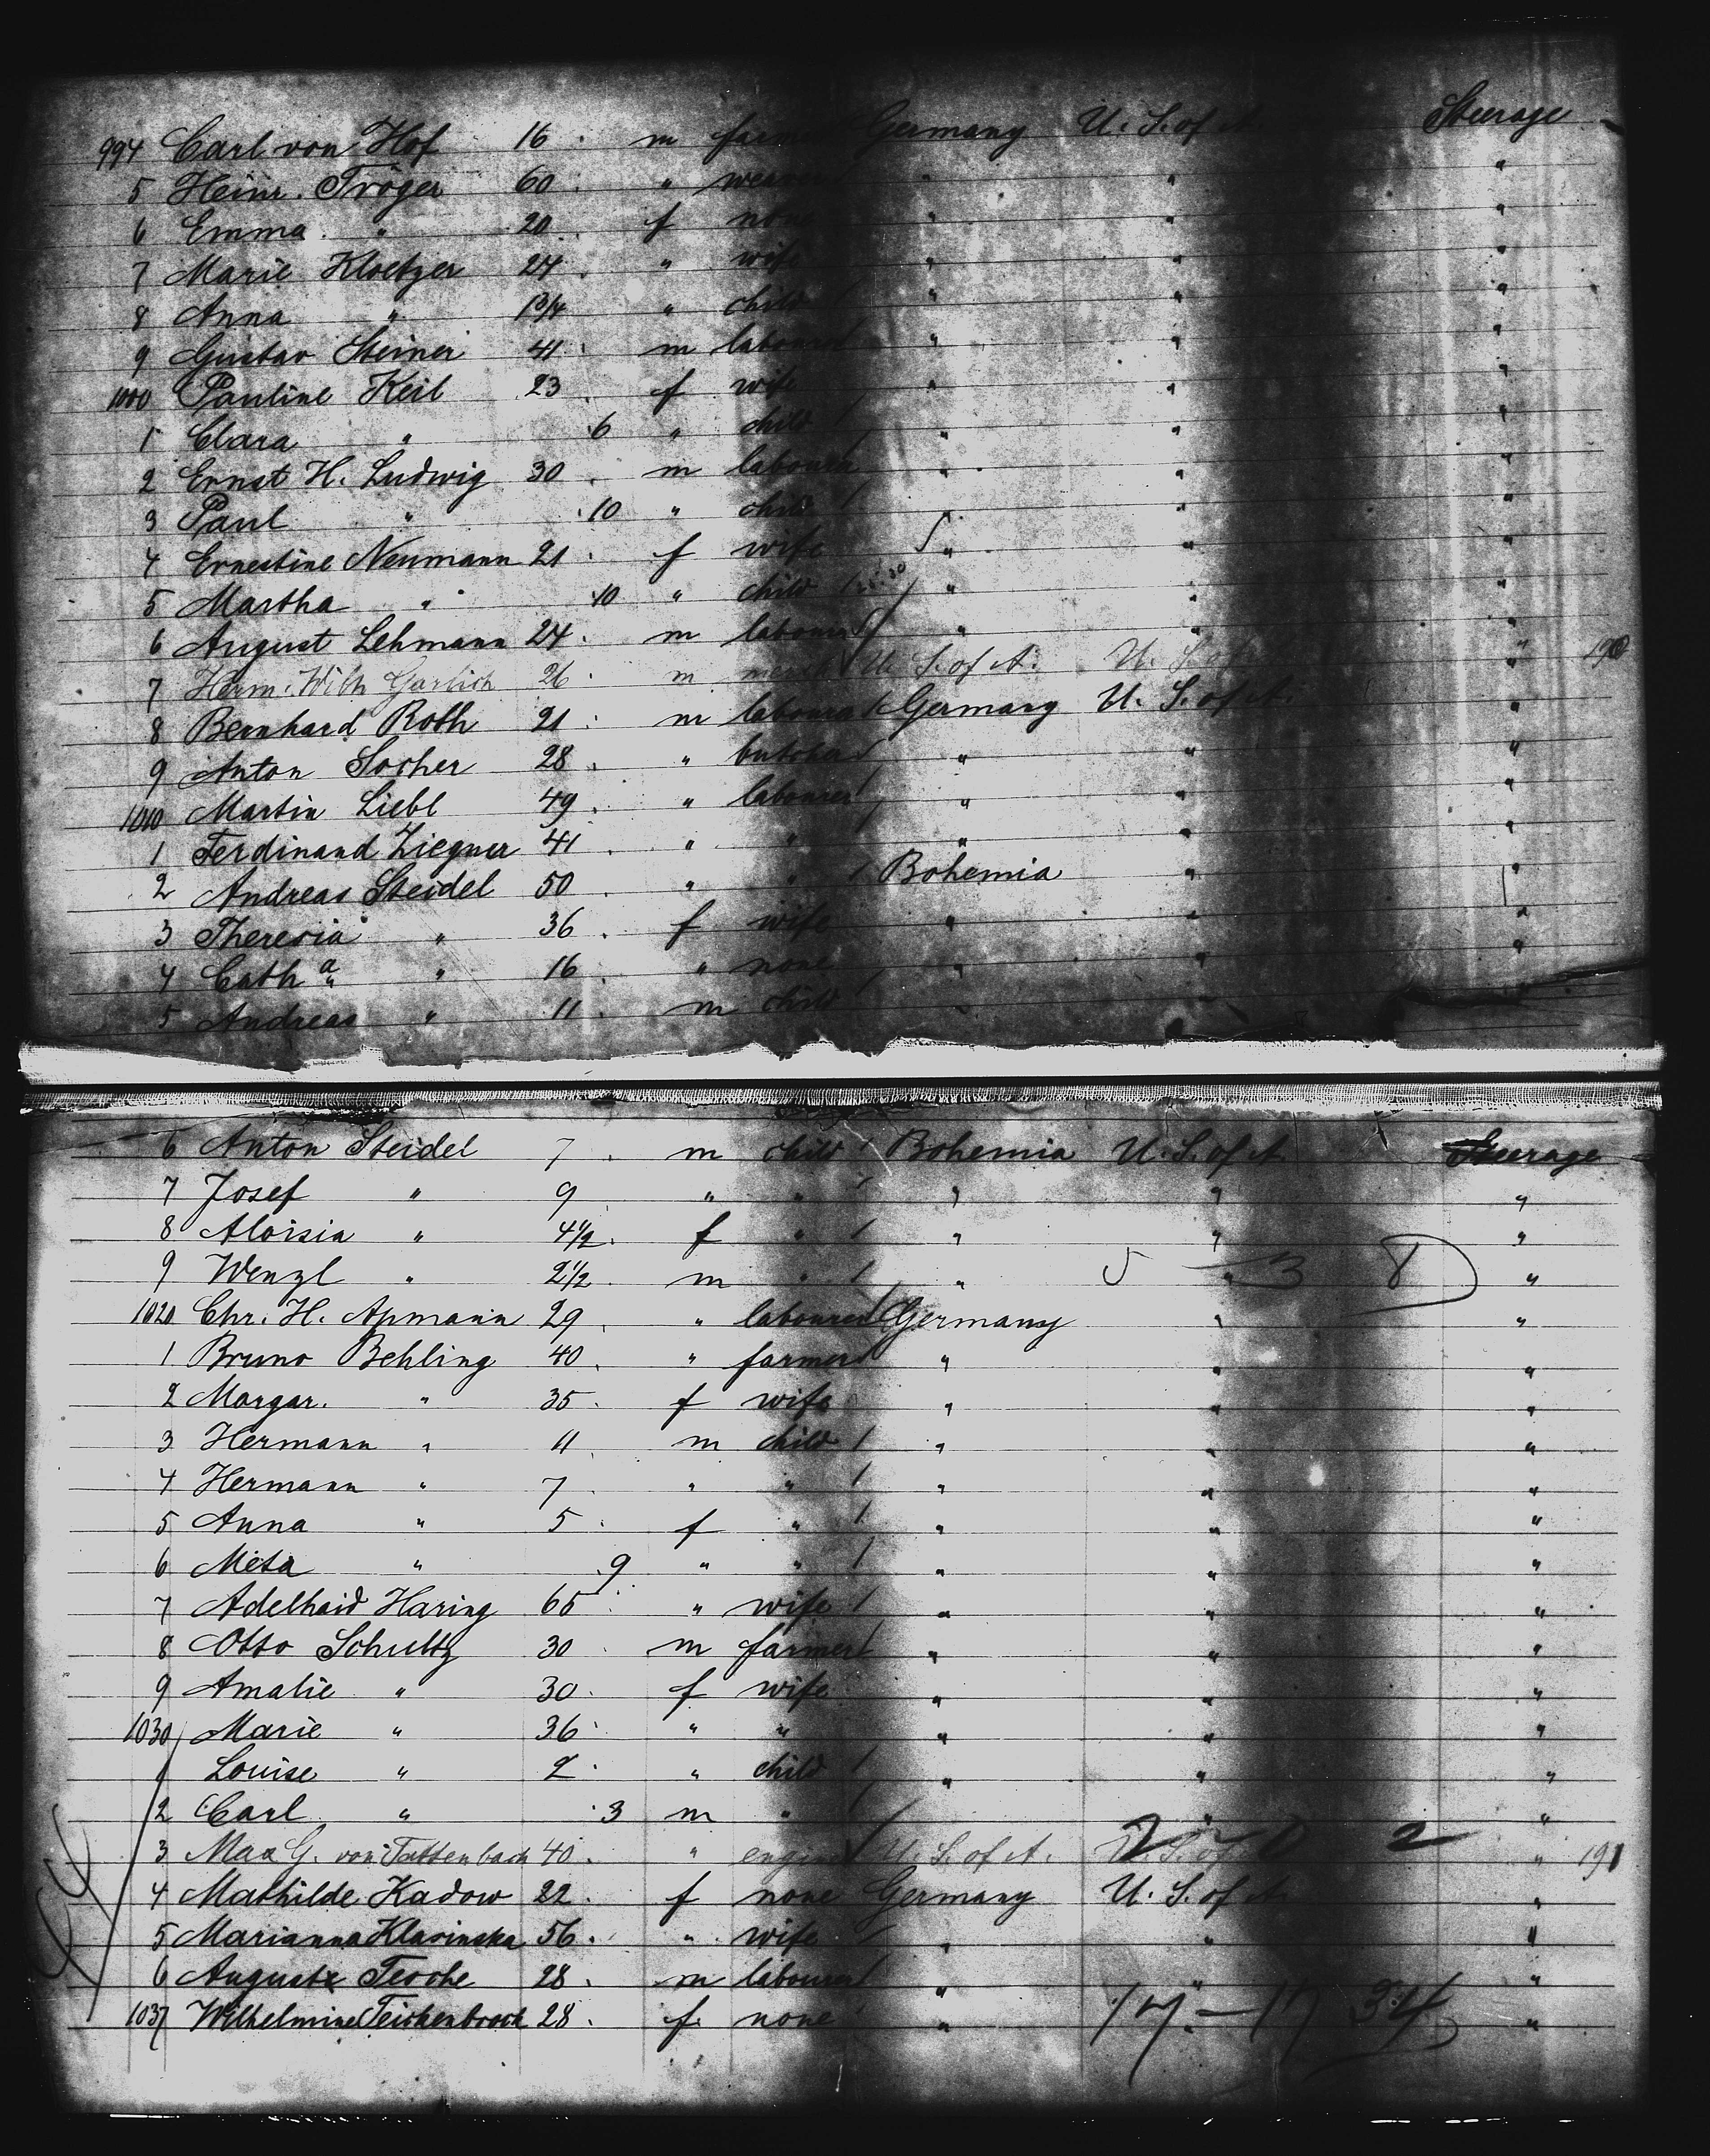 994 Carl von Hof 16 m farmer Germany U. S. of A. Steerage
5 Heinr. Tröger 60 " weaver " " "
6 Emma " 20 f none " " "
7 Marie Kloetzer 24 " wife " " "
8 Anna " 1 3/4 " child " " "
9 Gustav Steiner 41 m labourer " " "
1000 Pauline Keil 23 f wife " " "
1 Clara " 6 " child " " "
2 Ernst H. Ludwig 30 m labourer " " "
3 Paul " 10 " child " " "
4 Ernestine Neumann 21 f wife " " "
5 Martha " 10 " child " " "
6 August Lehmann 24 m labourer " " "
7 Herm. Wilh Garlich 26 m U. S. of A. U. S. of " 190
8 Bernhard Roth 21 m labourer Germany U. S. of A. "
9 Anton Socher 28 " butcher " " "
1010 Martin Liebl 49 " labourer " " "
1 Ferdinand Ziegner 41 " " " " "
2 Andreas Steidel 50 " " Bohemia " "
3 Theresia " 36 f wife " " "
4 Cath a " 16 " none " " "
5 Andreas " 11 m child
6 Anton Steidel 7 m child Bohemia U. S. of A. Steerage
7 Josef " 9 " " " " "
8 Aloisia " 4 1/2 f " " " "
9 Wenzl " 2 1/2 m " " 5 3 8 "
1020 Chr. H. Apmann 29 " labourer Germany " "
1 Bruno Behling 40 " farmer " " "
2 Margar. " 35 f wife " " "
3 Hermann " 11 m child " " "
4 Hermann " 7 " " " " "
5 Anna " 5 f " " " "
6 Meta " 9 " " " " "
7 Adelhaid Haring 65 " wife " " "
8 Otto Schultz 30 m farmer " " "
9 Amalie " 30 f wife " " "
1030 Marie " 36 " " " " "
1 Louise " 2 " child " " "
2 Carl " 3 m " " "
3 Max G. von Tattenbach 40 " engin U. S. of A. U. S. of 2 " 191
4 Mathilde Kadow 22 f none Germany U. S. of A. "
5 Marianna Klasinska 56 " wife " " "
6 August Tesche 28 m labourer " " "
1037 Wilhelmine Teichenbroch 28 f none " 17 - 17 34 "